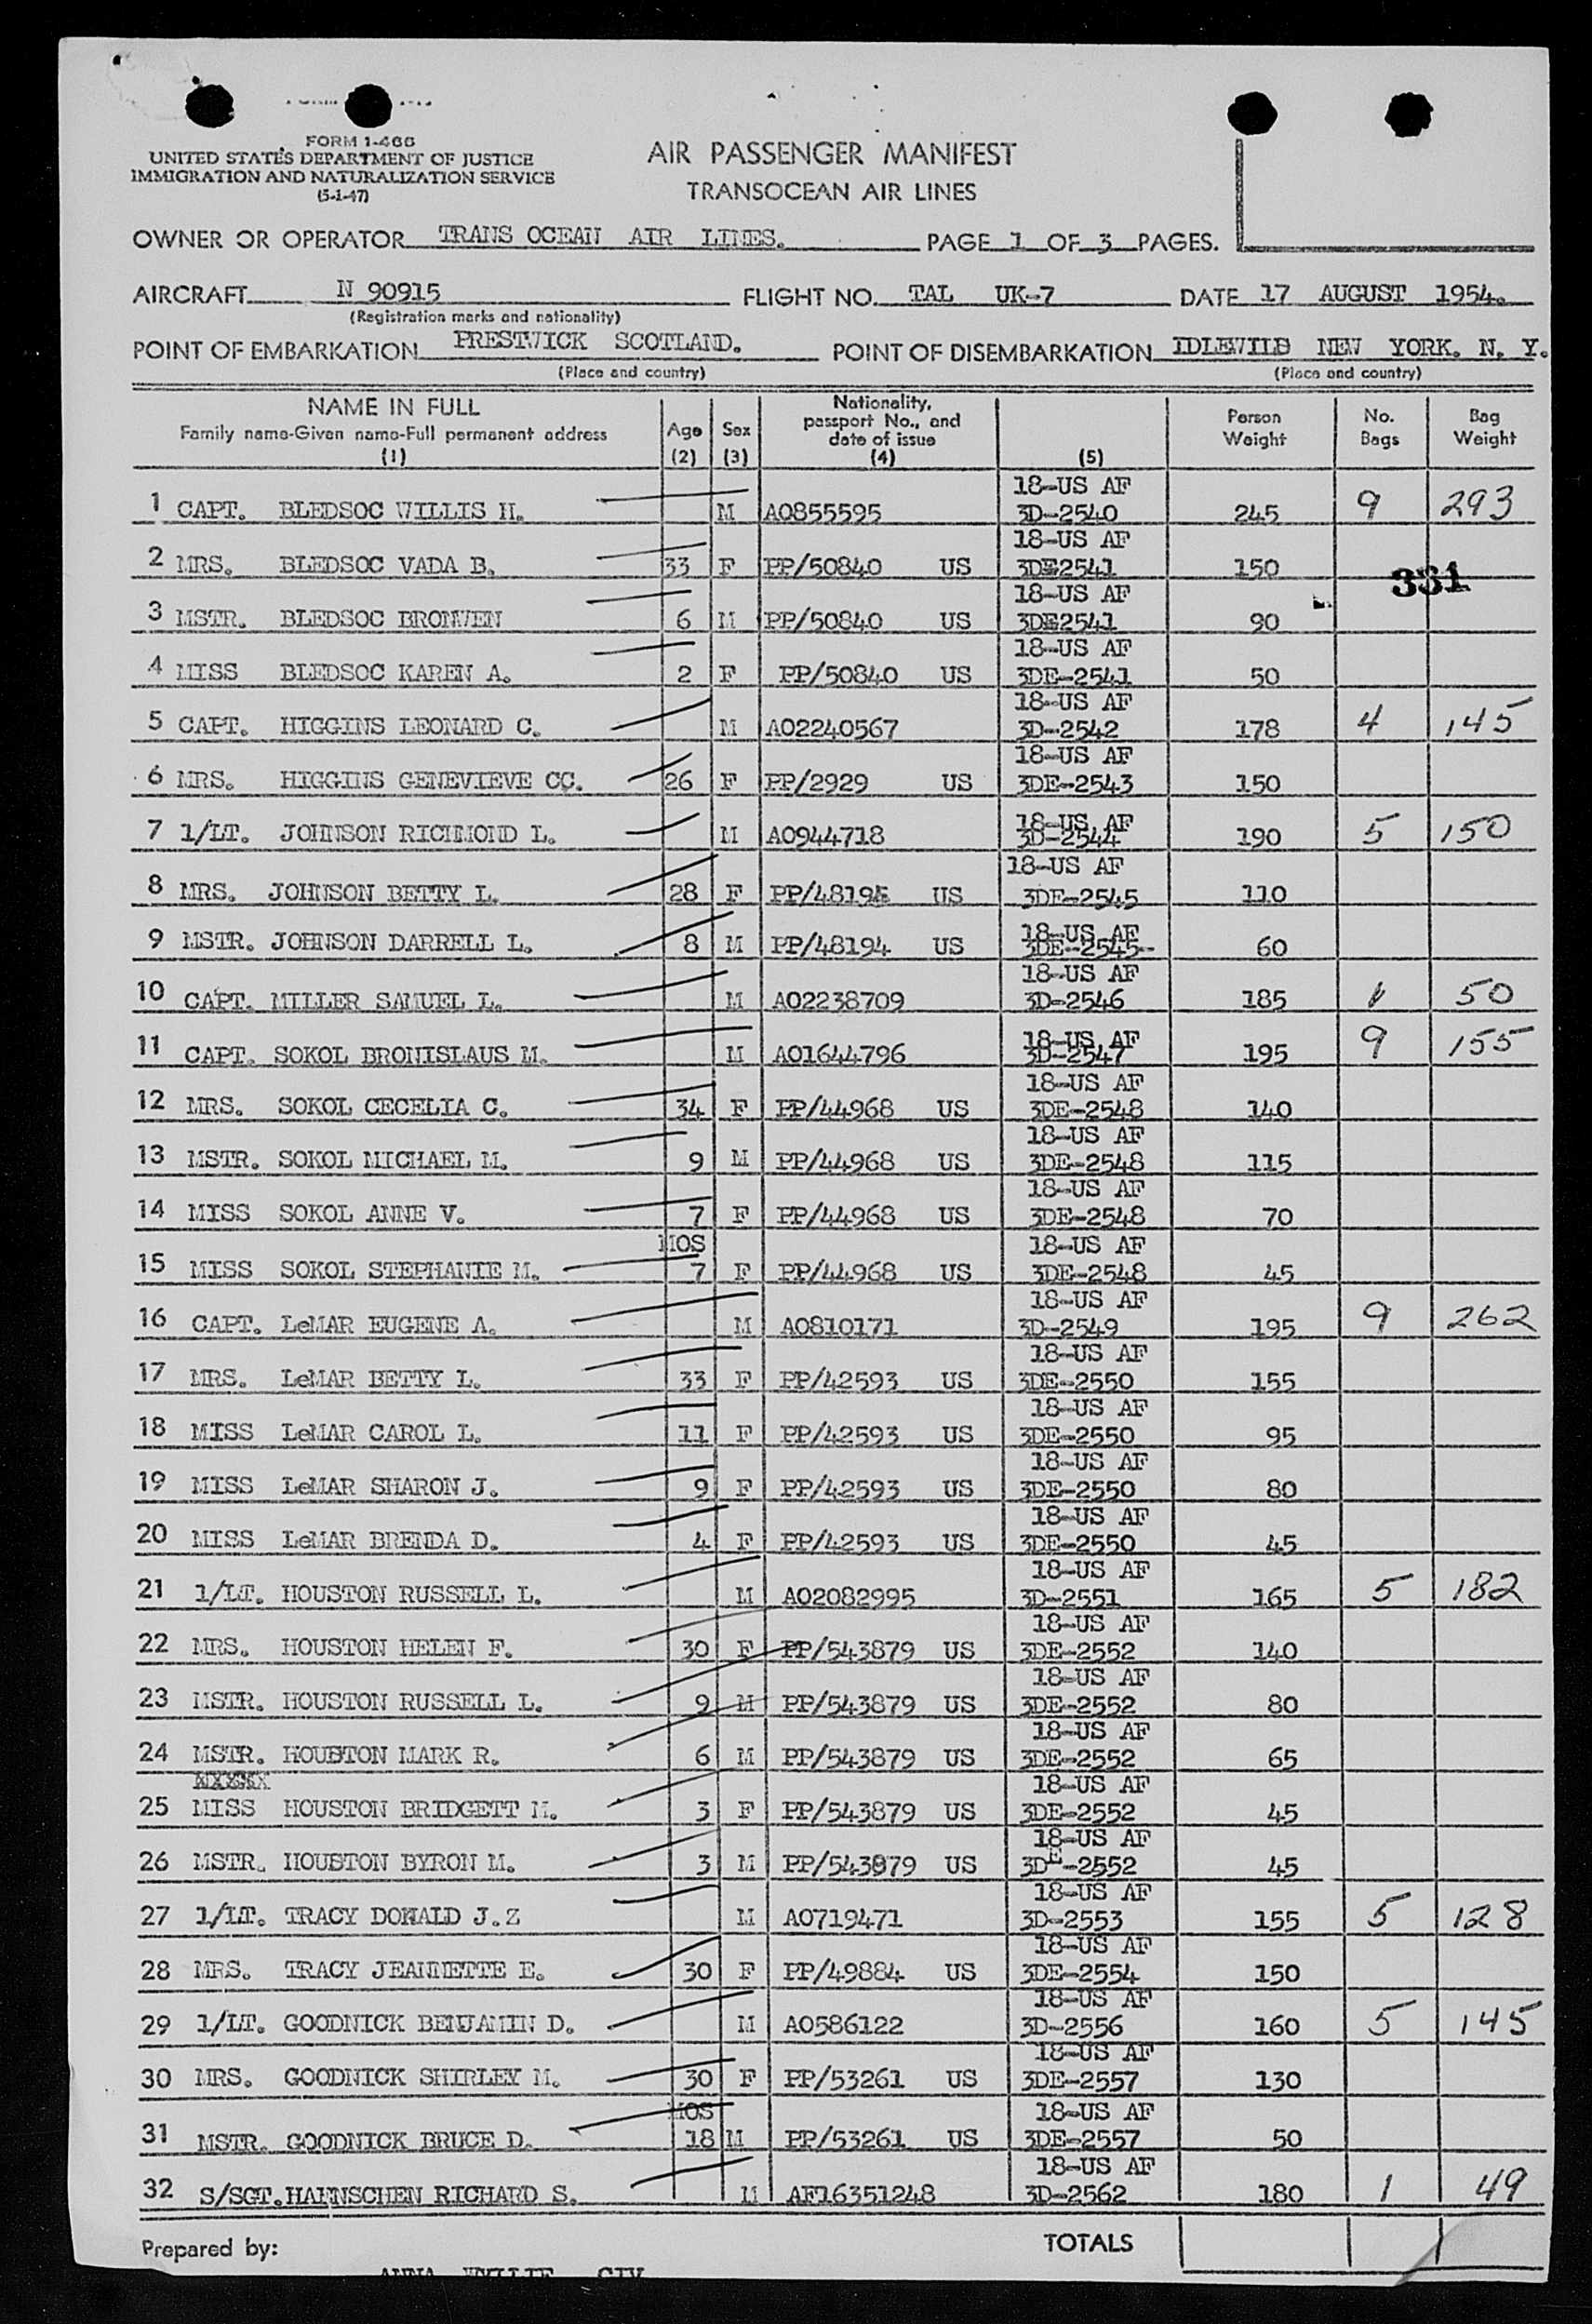 FORM 1-466
UNITED STATES DEPARTMENT OF JUSTICE
IMMIGRATION AND NATURALIZATION SERVICE
(5-1-47)
AIR PASSENGER MANIFEST
TRANSOCEAN AIR LINES
OWNER OR OPERATOR TRANS OCEAN AIR LINES. PAGE 1 OF 3 PAGES.
AIRCRAFT N 90915 FLIGHT NO. TAL UK-7 DATE 17 AUGUST 1954.
(Registration marks and nationality)
POINT OF EMBARKATION PRESTWICK SCOTLAND. POINT OF DISEMBARKATION IDLEWILD NEW YORK. N. Y.
(Place and country) (Place and country)
NAME IN FULL
Family name-Given name-Full permanent address
(1)
Age
(2)
Sex
(3)
Nationality,
passport No., and
date of issue
(4)
(5)
Person
Weight
No.
Bags
Bag
Weight
18-US AF
1 CAPT. BLEDSOC WILLIS H. M A0855595 3D-2540 245 9 293
18-US AF
2 MRS. BLEDSOC VADA B. 33 F PP/50840 US 3DE2541 150
331
18-US AF
3 MSTR. BLEDSOC BRONWEN 6 M PP/50840 US 3DE2541 90
18-US AF
4 MISS BLEDSOC KAREN A. 2 F PP/50840 US 3DE-2541 50
18-US AF
5 CAPT. HIGGINS LEONARD C. M A02240567 3D-2542 178 4 145
18-US AF
6 MRS. HIGGINS GENEVIEVE CC. 26 F PP/2929 US 3DE-2543 150
18-US AF
7 1/LT. JOHNSON RICHMOND L. M A0944718 3D-2544 190 5 150
18-US AF
8 MRS. JOHNSON BETTY L. 28 F PP/48194 US 3DE-2545 110
18-US AF
9 MSTR. JOHNSON DARRELL L. 8 M PP/48194 US 3DE-2545-- 60
18-US AF
10 CAPT. MILLER SAMUEL L. M A02238709 3D-2546 185 1 50
18-US AF
11 CAPT. SOKOL BRONISLAUS M. M A01644796 3D-2547 195 9 155
18-US AF
12 MRS. SOKOL CECELIA C. 34 F PP/44968 US 3DE-2548 140
18-US AF
13 MSTR. SOKOL MICHAEL M. 9 M PP/44968 US 3DE-2548 115
18-US AF
14 MISS SOKOL ANNE V. 7 F PP/44968 US 3DE-2548 70
MOS 18-US AF
15 MISS SOKOL STEPHANIE M. 7 F PP/44968 US 3DE-2548 45
18-US AF
16 CAPT. LeMAR EUGENE A. M A0810171 3D-2549 195 9 262
18-US AF
17 MRS. LeMAR BETTY L. 33 F PP/42593 US 3DE-2550 155
18-US AF
18 MISS LeMAR CAROL L. 11 F PP/42593 US 3DE-2550 95
18-US AF
19 MISS LeMAR SHARON J. 9 F PP/42593 US 3DE-2550 80
18-US AF
20 MISS LeMAR BRENDA D. 4 F PP/42593 US 3DE-2550 45
18-US AF
21 1/LT. HOUSTON RUSSELL L. M A02082995 3D-2551 165 5 182
18-US AF
22 MRS. HOUSTON HELEN F. 30 F PP/543879 US 3DE-2552 140
18-US AF
23 MSTR. HOUSTON RUSSELL L. 9 M PP/543879 US 3DE-2552 80
18-US AF
24 MSTR. HOUSTON MARK R. 6 M PP/543879 US 3DE-2552 65
18-US AF
25 MISS HOUSTON BRIDGETT M. 3 F PP/543879 US 3DE-2552 45
18-US AF
26 MSTR. HOUSTON BYRON M. 3 M PP/543879 US 3DE-2552 45
18-US AF
27 1/LT. TRACY DONALD J.Z M A0719471 3D-2553 155 5 128
18-US AF
28 MRS. TRACY JEANNETTE E. 30 F PP/49884 US 3DE-2554 150
18-US AF
29 1/LT. GOODNICK BENJAMIN D. M A0586122 3D-2556 160 5 145
18-US AF
30 MRS. GOODNICK SHIRLEY M. 30 F PP/53261 US 3DE-2557 130
MOS 18-US AF
31 MSTR. GOODNICK BRUCE D. 18 M PP/53261 US 3DE-2557 50
18-US AF
32 S/SGT. HAHNSCHEN RICHARD S. M AF16351248 3D-2562 180 1 49
Prepared by: TOTALS